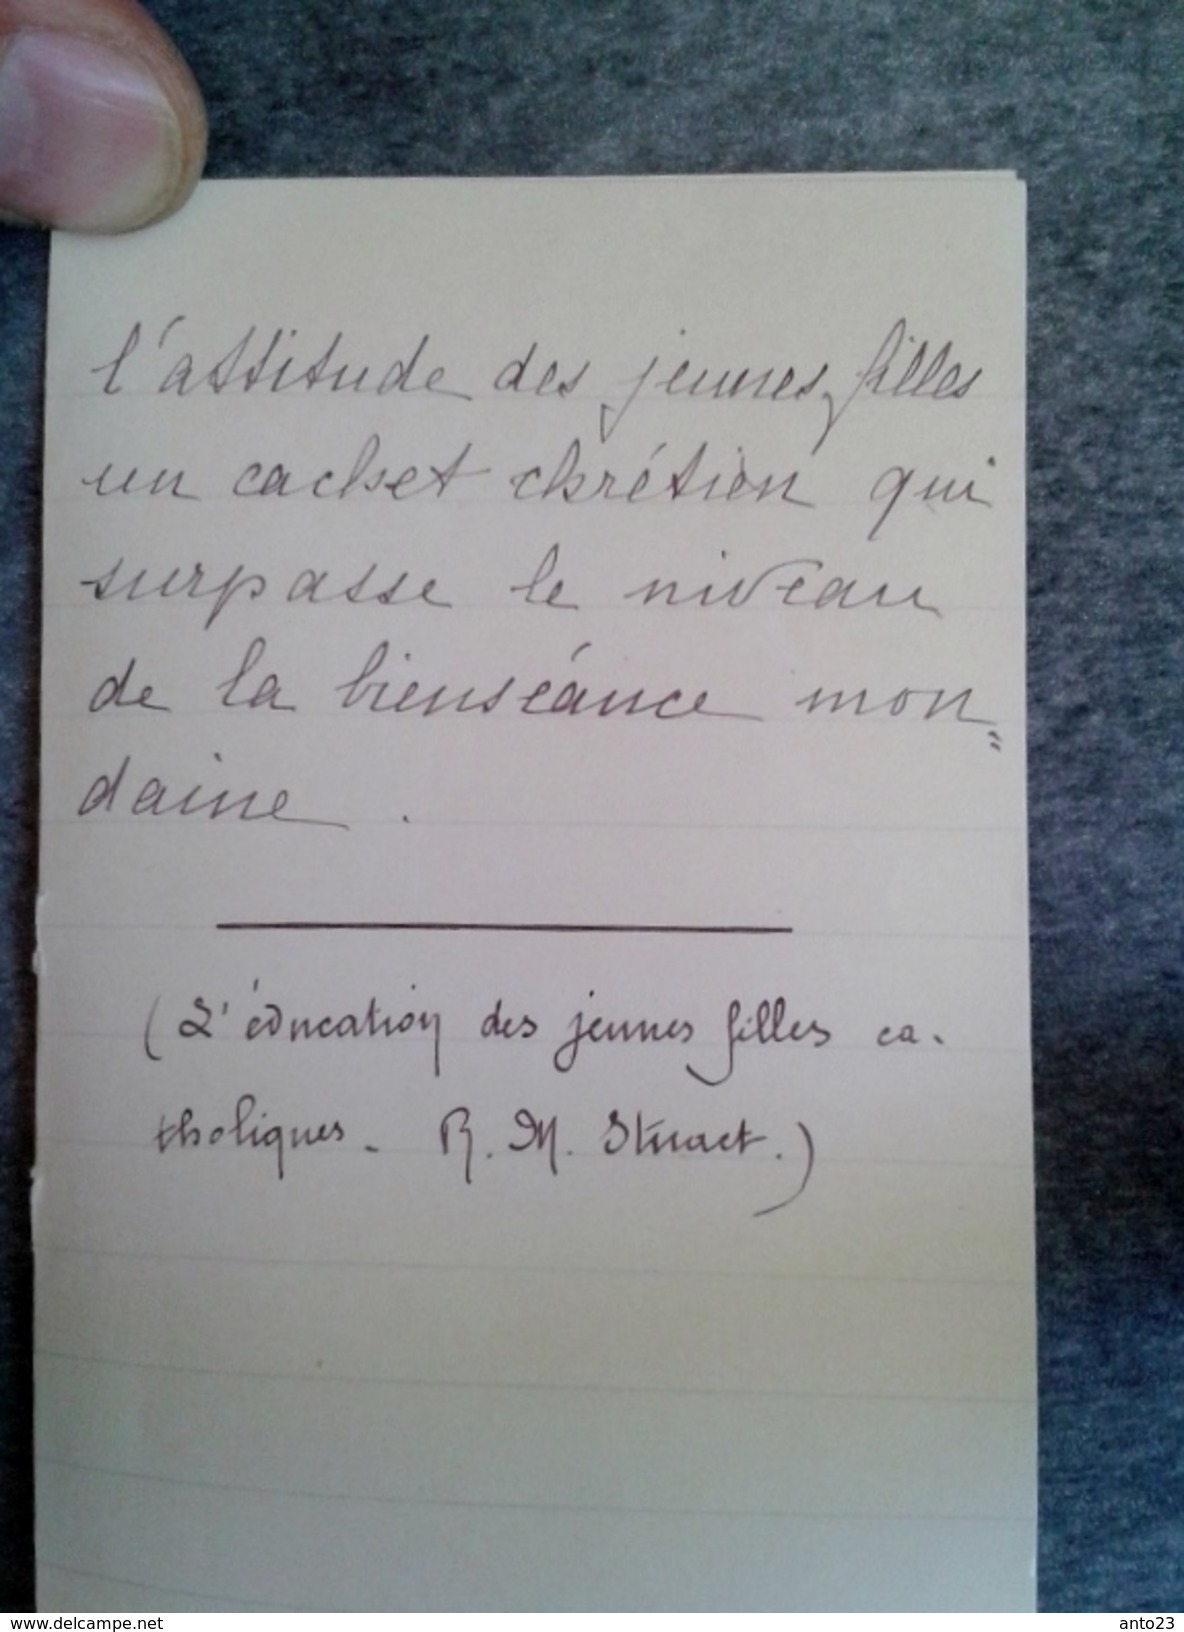 l'attitude des jeunes filles
un cachet chrétien qui
surpasse le niveau
de la bienséance mon=
daine.
(L'éducation des jeunes filles ca-
tholiques - R. M. Stuart.)
www.delcampe.net
anto23